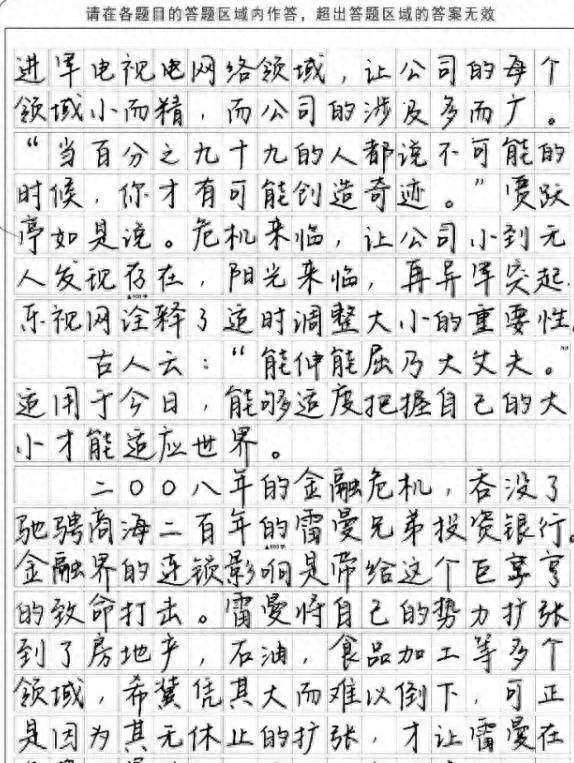 请在各题目的答题区域内作答，超出答题区域的答案无效
进军电视电网络领域，让公司的每个
领域小而精，而公司的涉及多而广。
“当百分之九十九的人都说不可能的
时候，你才有可能创造奇迹。”贾跃
亭如是说。危机来临，让公司小到无
人发现存在，阳光来临，再异军突起
乐视网诠释了适时调整大小的重要性。
古人云：“能伸能屈乃大丈夫。”
适用于今日，能够适度把握自己的大
小才能适应世界。
二〇〇八年的金融危机，吞没了
驰骋商海二百年的雷曼兄弟投资银行。
金融界的连锁影响是带给这个巨享亨
的致命打击。雷曼将自己的势力扩张
到了房地产，石油，食品加工等多个
领域，希冀凭其大而难以倒下，可正
是因为其无休止的扩张，才让雷曼在